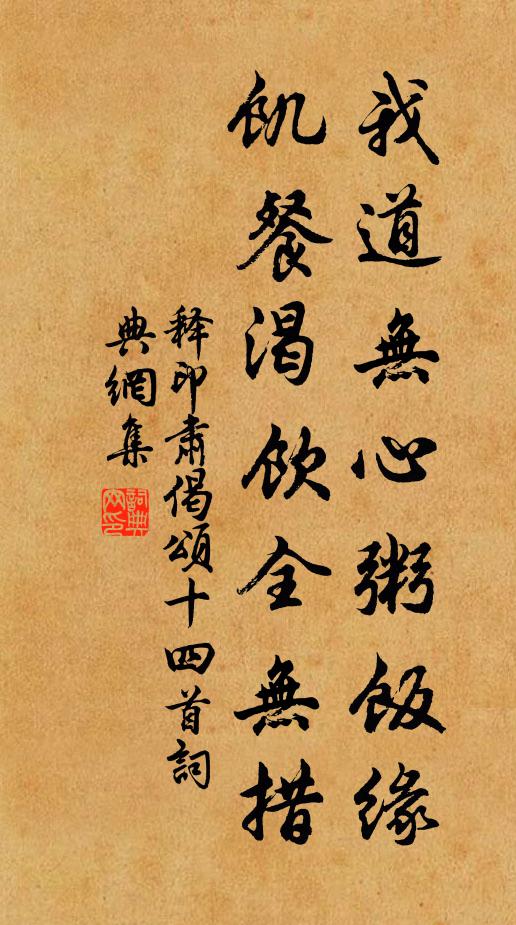 我道無心粥飯緣
飢餐渴飲全無措
释印肅偈頌十四首詞
典網集
詞典網印